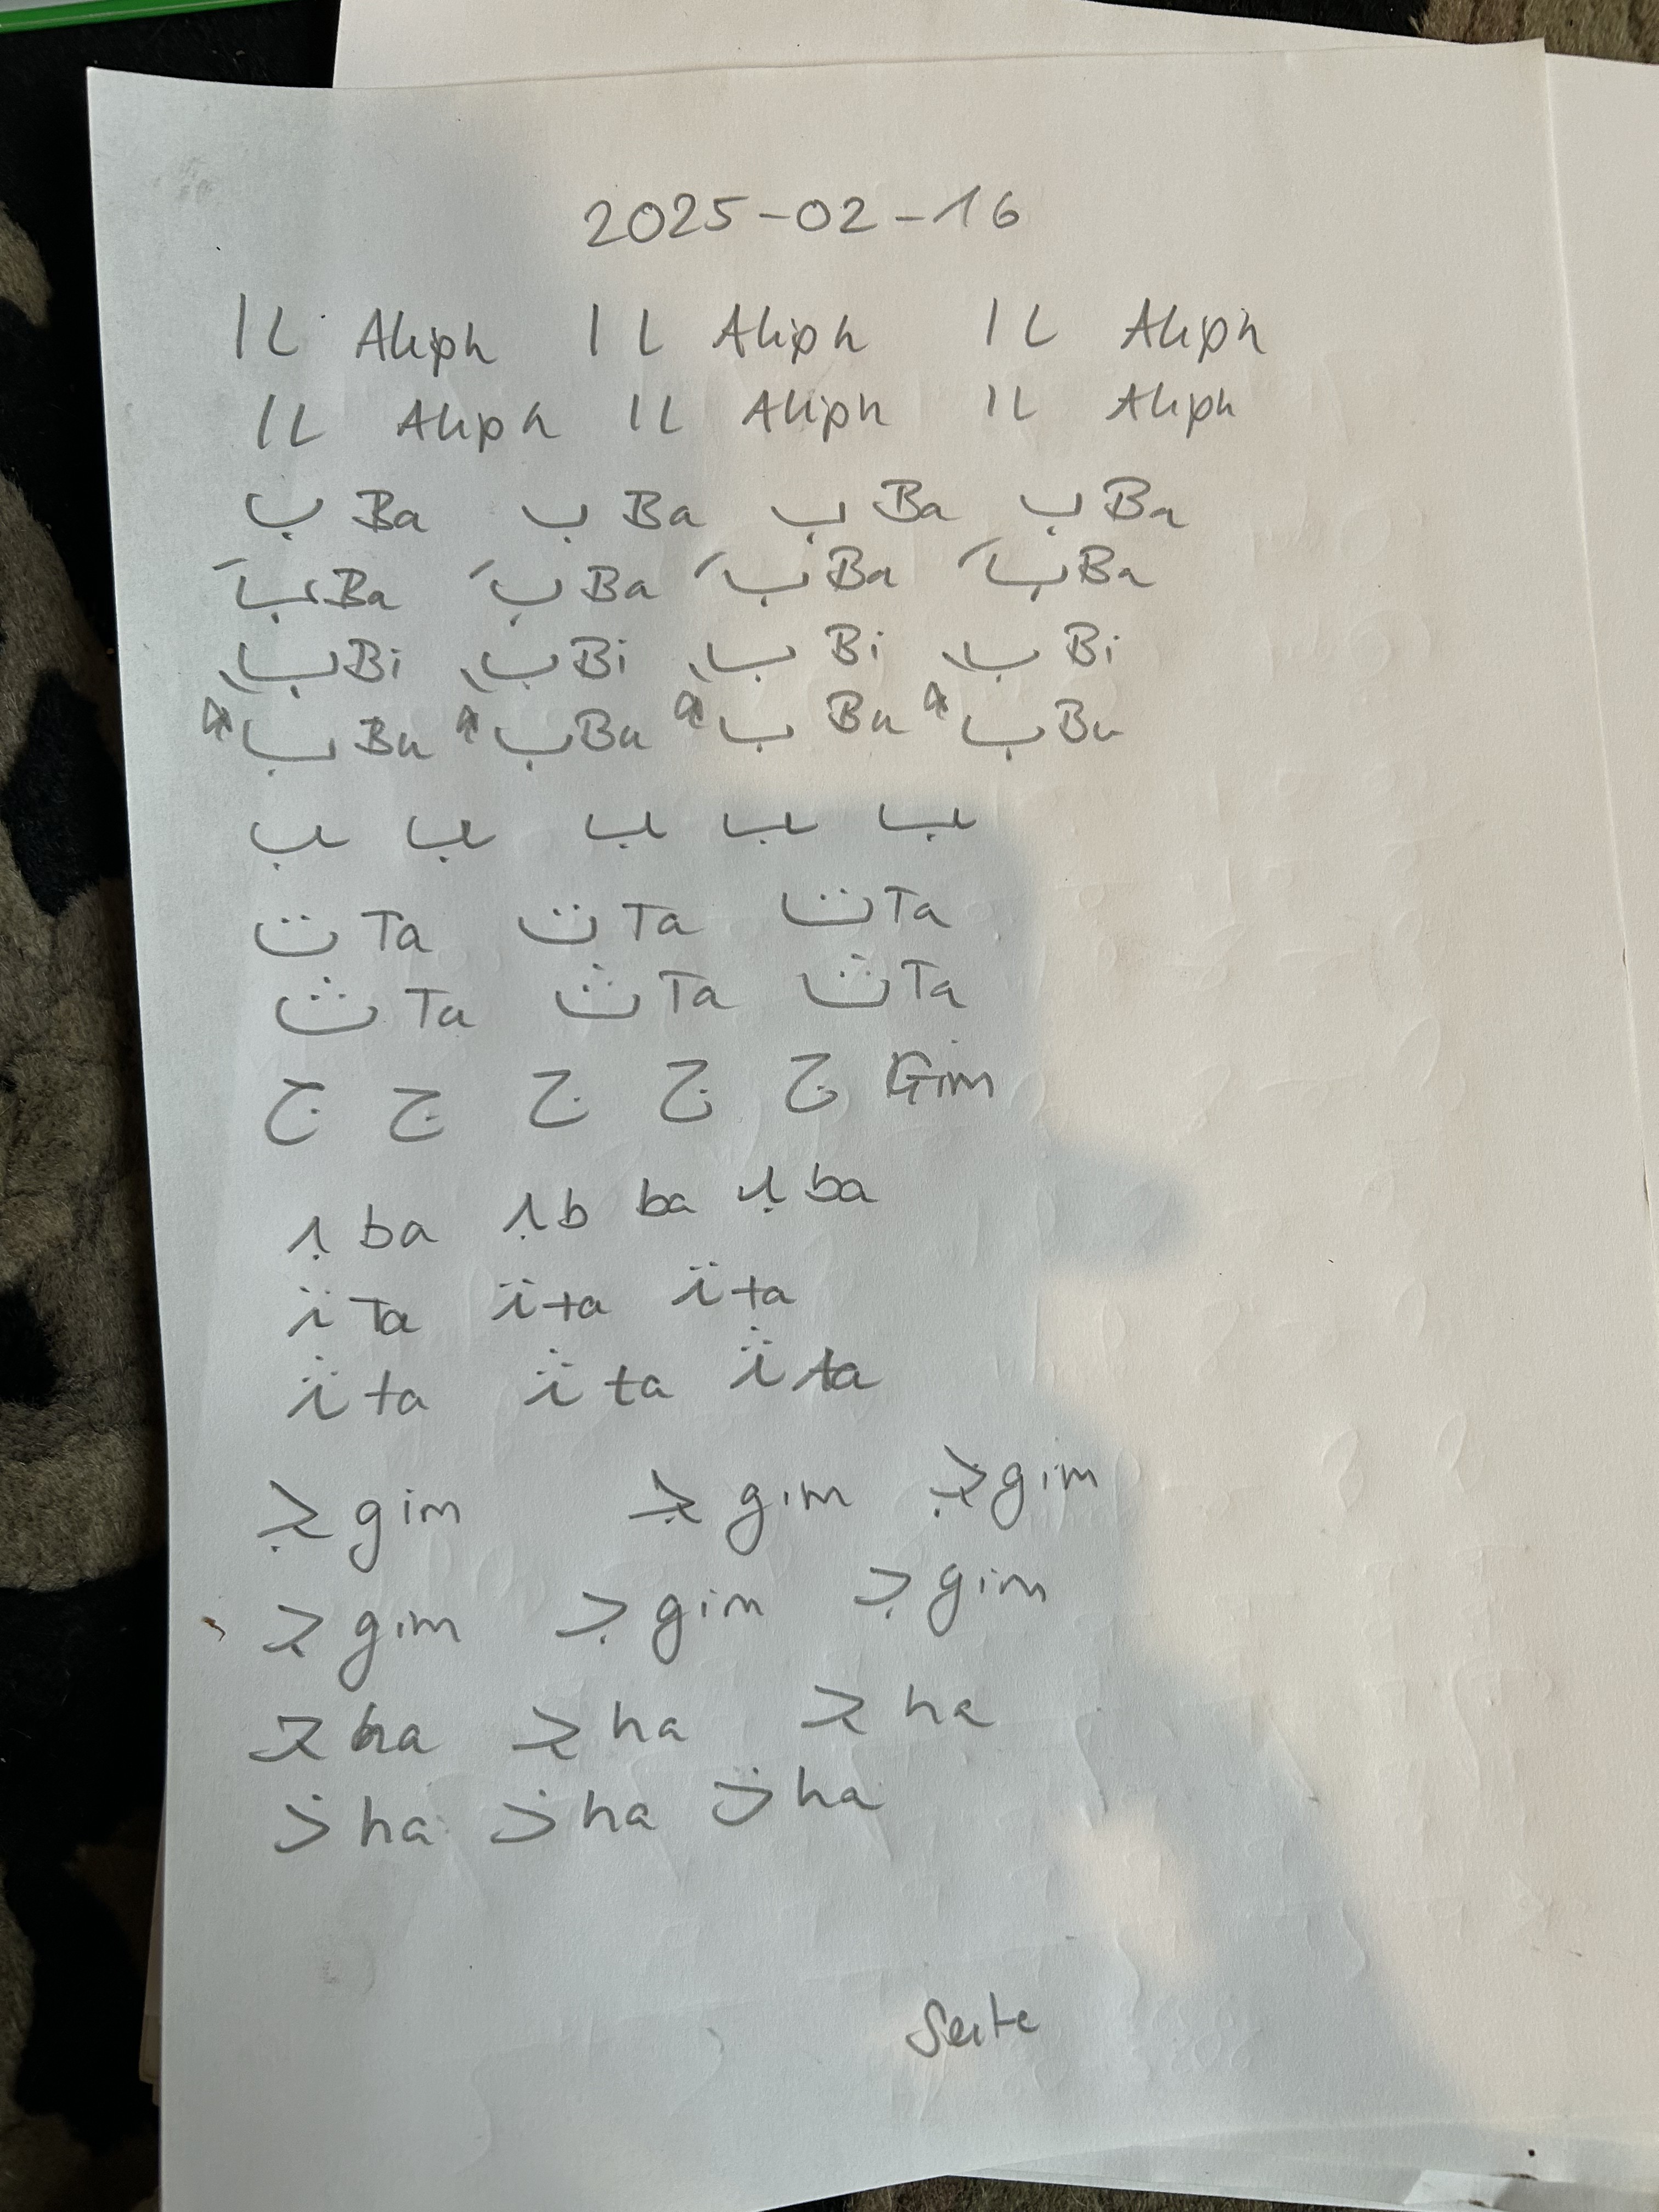 2025-02-16
ا L Aliph ا L Aliph ا L Aliph
ا L Aliph ا L Aliph ا L Aliph
ب Ba ب Ba ب Ba ب Ba
بَ Ba بَ Ba بَ Ba بَ Ba
Bi Bi Bi Bi
بُ Bu بُ Bu بُ Bu بُ Bu
ت Ta ت Ta ت Ta
ت Ta ت Ta ت Ta
ج ج ج ج ج Gim
ba b ba ba
Ta ta ta
ta ta ta
gim gim gim
gim gim gim
ha ha ha
ha ha ha
Seite